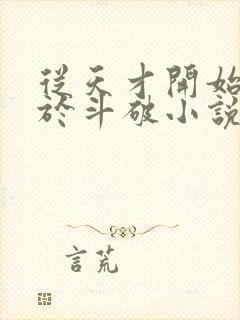 從天才開始
於斗破小說
言荒